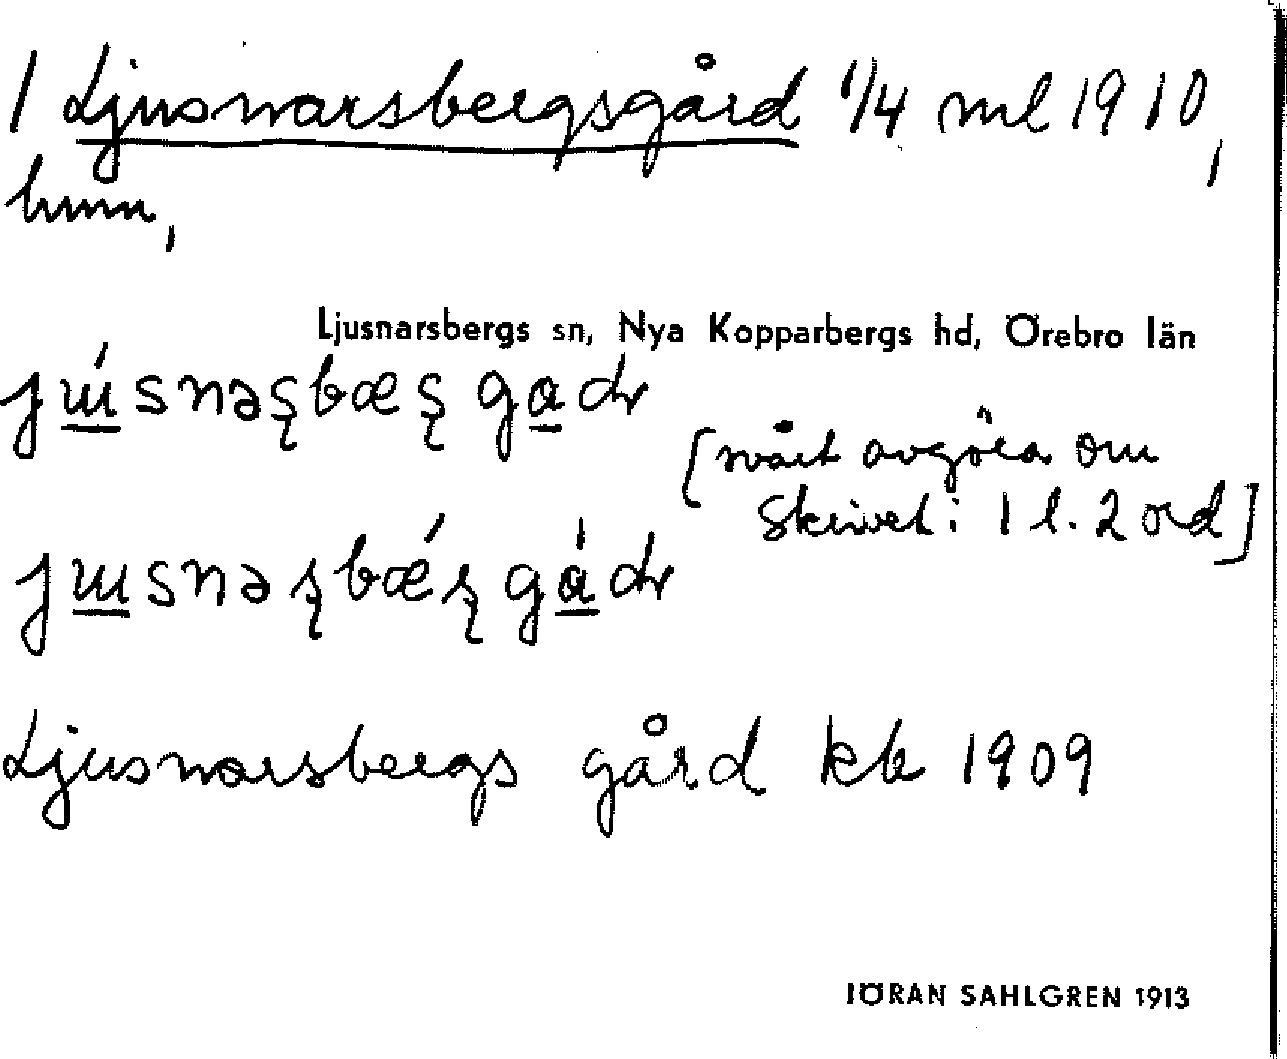 1 Ljusnarsbergsgård 1/4 ml 1910,
hmn,
Ljusnarsbergs sn, Nya Kopparbergs hd, Örebro län
[svårt avgöra om
skrivet: 1 l. 2 ord]
Ljusnarsbergs gård kb 1909
JÖRAN SAHLGREN 1913